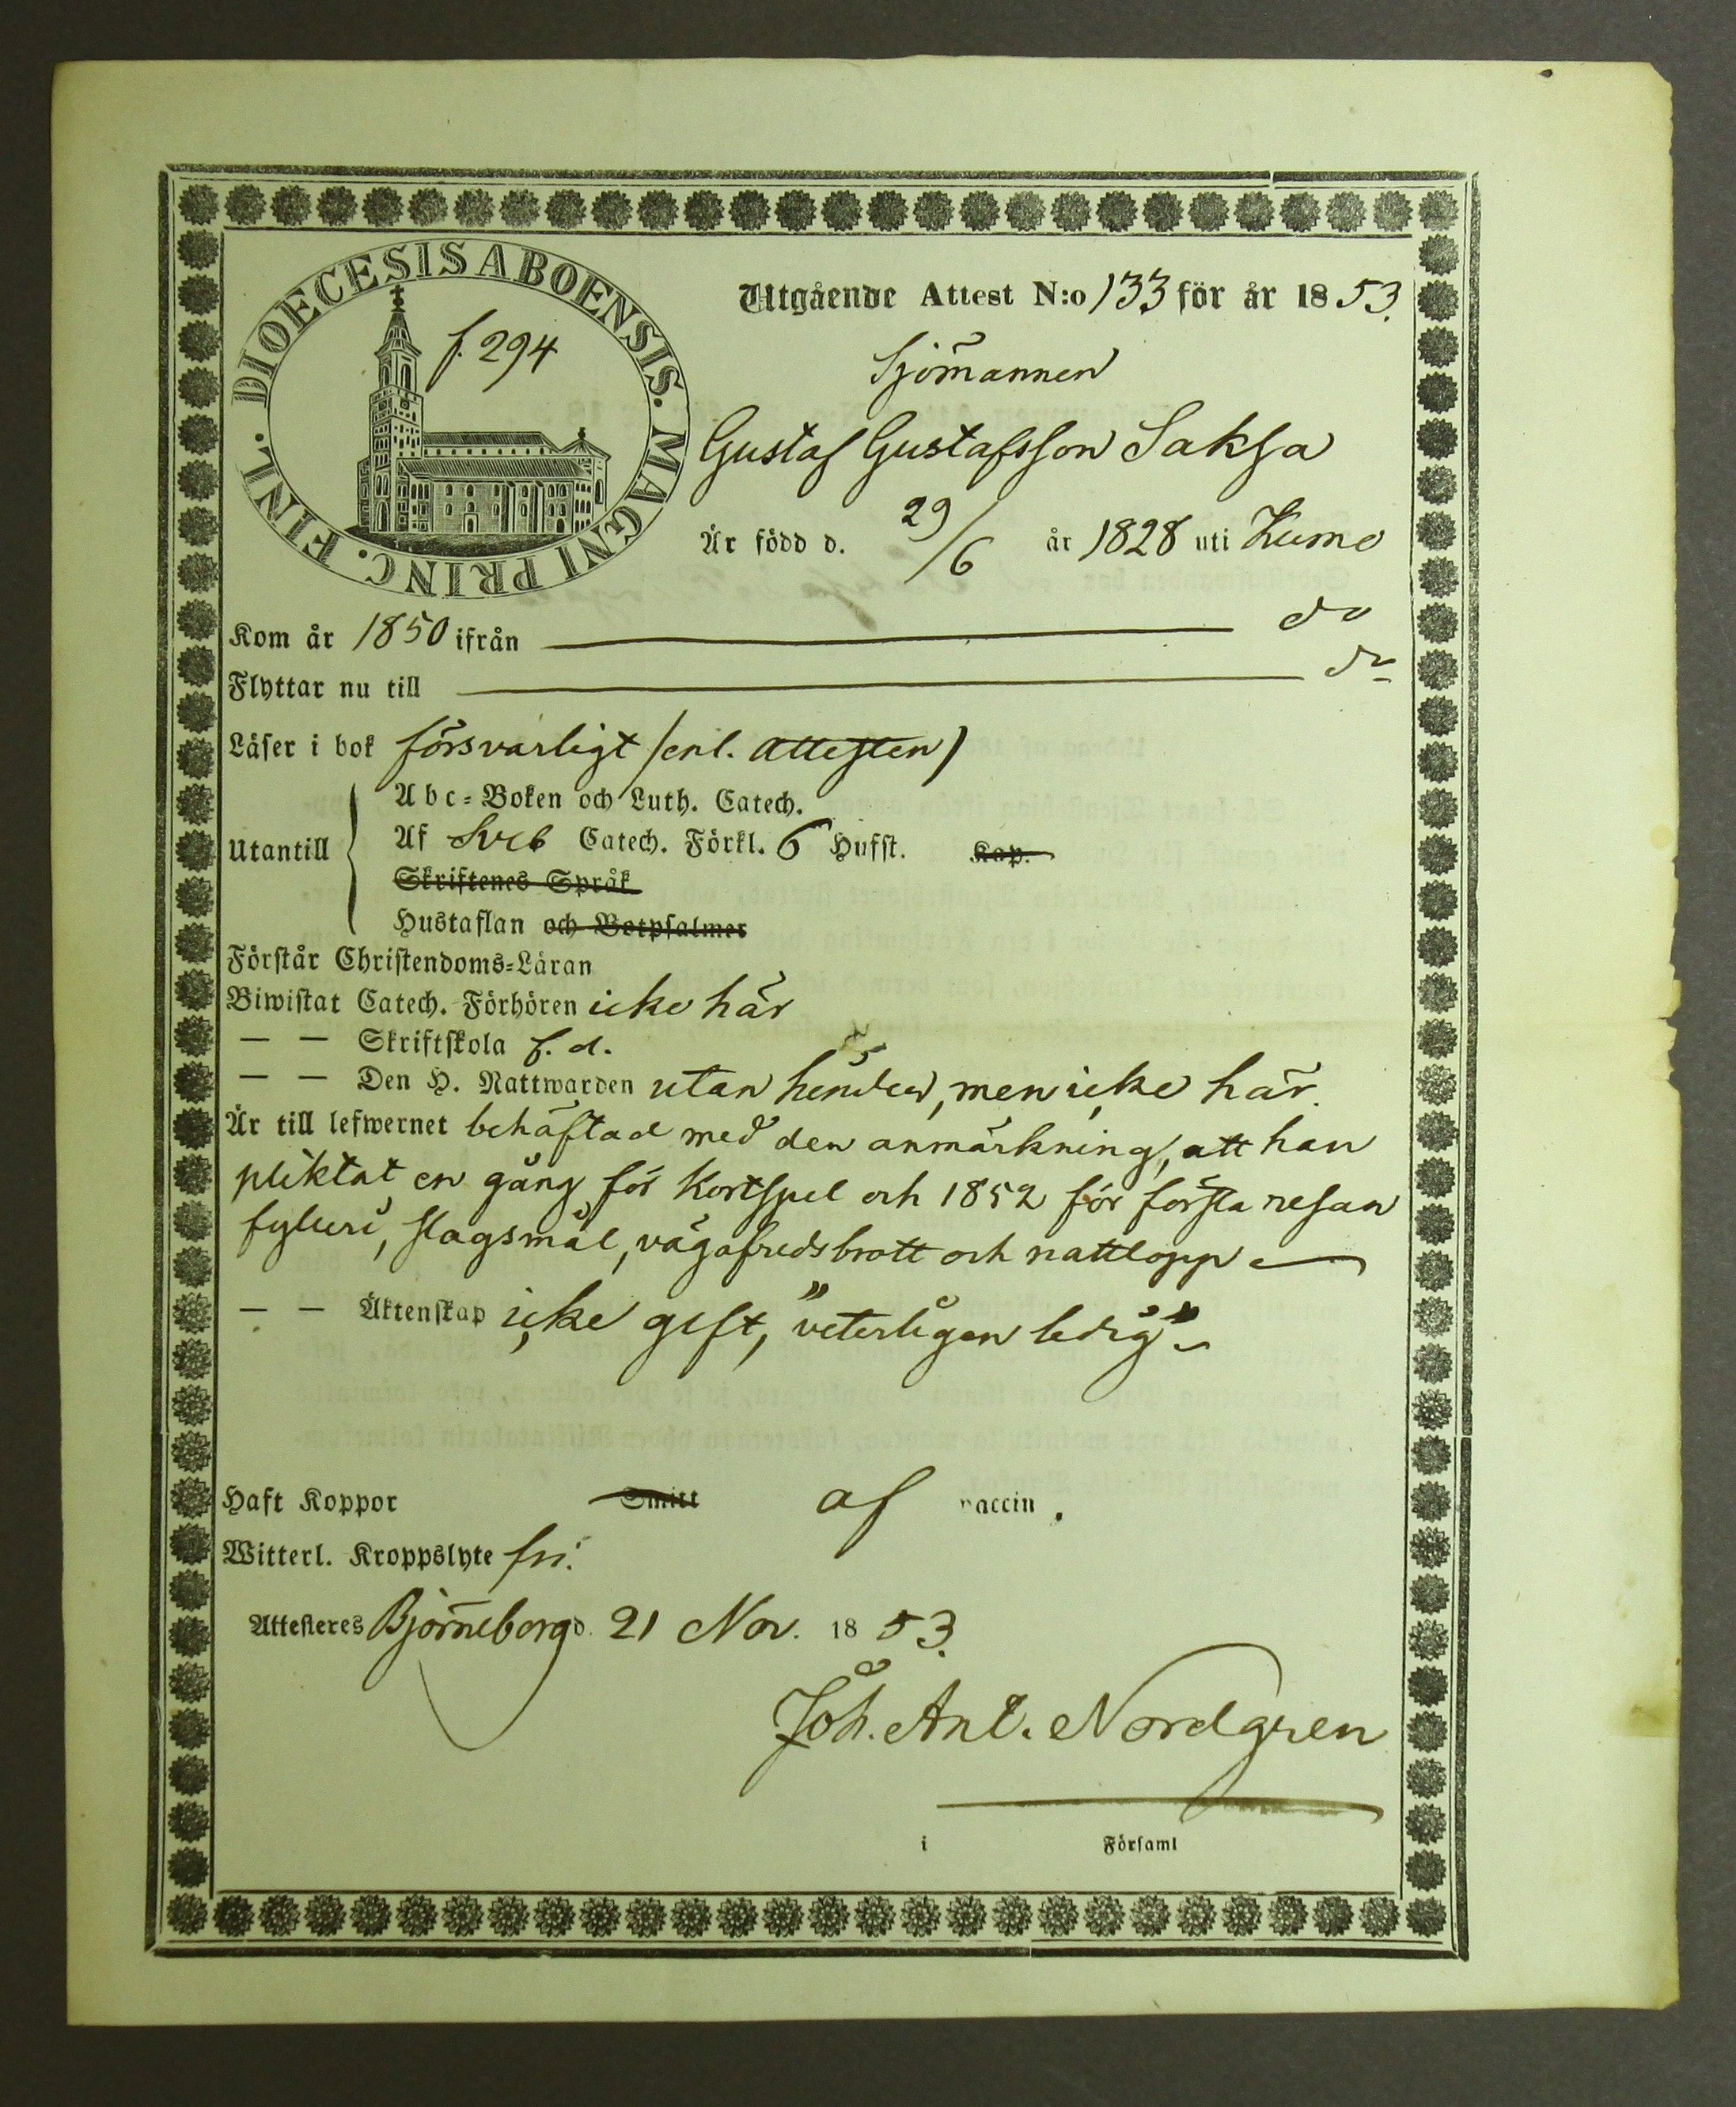 DIOECESIS ABOENSIS. MAGNI PRINC. FINL.
f. 294
Utgående Attest N:o 133 för år 1853.
Sjömannen
Gustaf Gustafsson Saksa
Är född d. 29/6 år 1828 uti Kumo
Kom år 1850 ifrån do
Flyttar nu till do
Läser i bok försvarligt /enl. attesten/
Utantill
Abc-Boken och Luth. Catech.
Af Sveb Catech. Förkl. 6 Hufst. Kap.
Skriftenes Språk
Hustaflan och Botpsalmer
Förstår Christendoms-Läran
Biwistat Catech. Förhören icke här
— — Skriftskola f. d.
— — Den H. Nattwarden utan hinder, men icke här.
Är till lefwernet behäftad med den anmärkning, att han
pliktat en gång för Kortspel och 1852 för första resan
fylleri, slagsmål, vägafredsbrott och nattlopp
— — Äktenskap icke gift, "veterligen ledig"
Haft Koppor Smitt af vaccin.
Witterl. Kroppslyte fri.
Attesteres Björneborg d. 21 Nov. 1853.
Joh. Ant. Nordgren
i Församl